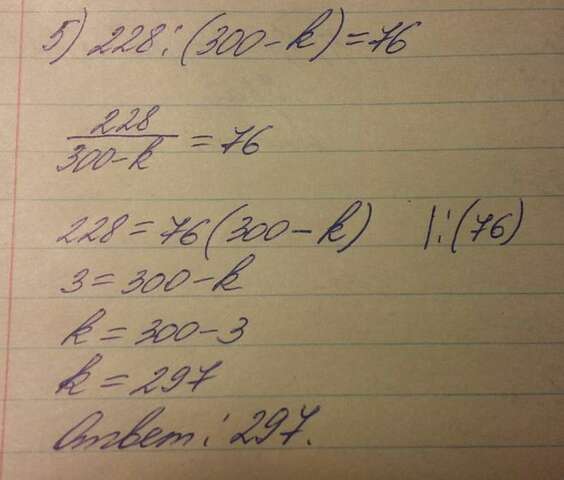 5) 228:(300-k)=76
228
300-k
= 76
228=76(300-k) |:(76)
3=300-k
k=300-3
k=297
Ответ: 297.